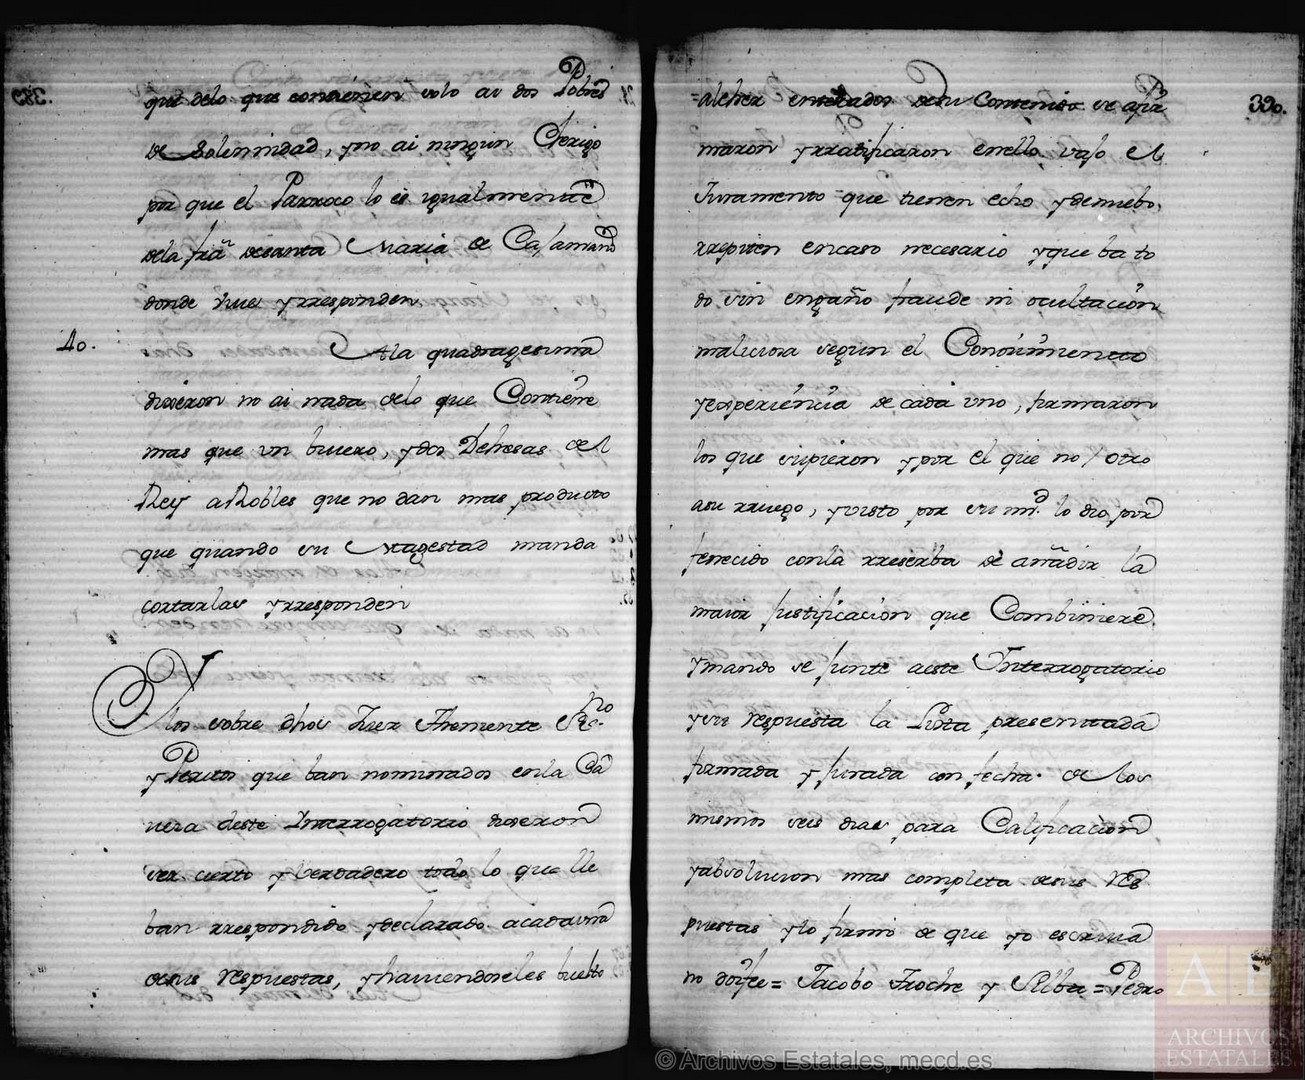 que delo que contienen solo ai dos Pobres
de Solennidad, y no ai ningun Clerigo
por que el Parroco lo es igualmente
dela fra desanta Maria de Casamund
donde vive y rresponden
40. Ala quadragesima
dixeron no ai nada delo que Contiene
mas que un vivero, y dos Dehesas del
Rey a Robles que no dan mas producto
que quando su Magestad manda
cortarlas y rresponden
Y los sobre dhos Juez Theniente Essno
y Peritos que ban nominados enla Ca
vera deste Interrogatorio dixeron
ser cierto y berdadero todo lo que lle
ban rrespondido y declarado acadauna
desus respuestas, y haviendoseles buelto
=aleher enterados desu Contenido se afir
maron y rratificaron enello vajo el
Juramento que tienen echo y denuebo
rrepiten encaso necesario y que ba to
do sin engaño fraude ni ocultacion
maliciosa segun el Conocimiento
y experiencia de cada uno, firmaron
los que supieron y por el que no / otro
asu rruego, y visto por su md. lo dio por
fenecido conla rreserba de añadir la
maior Justificacion que Combiniere
y mando se junte aeste Interrogatorio
y sus respuesta la Lista presentada
firmada y jurada con fecha de los
mismos seis dias para Calificacion
y absolucion mas completa desus Res
puestas y lo firmo de que yo escriva
no doi fee = Jacobo Froche y Silba = Pedro
390.
389
ARCHIVOS
ESTATALES
© Archivos Estatales, mecd.es